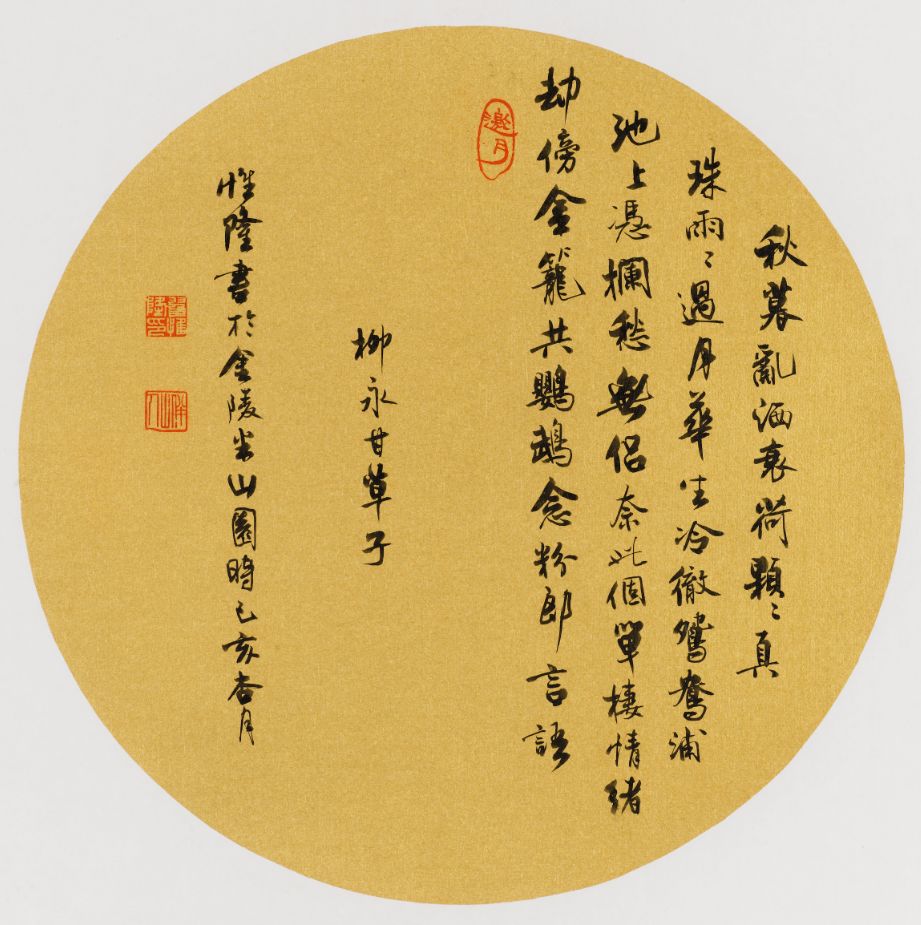 秋暮亂洒衰荷顆〻真
珠雨〻過月華生冷徹鴛鴦浦
池上憑欄愁無侶奈此個單棲情緒
却傍金籠共鸚鵡念粉郎言語
邀月
柳永甘草子
惟隆書於金陵半山園時己亥杏月
半山人